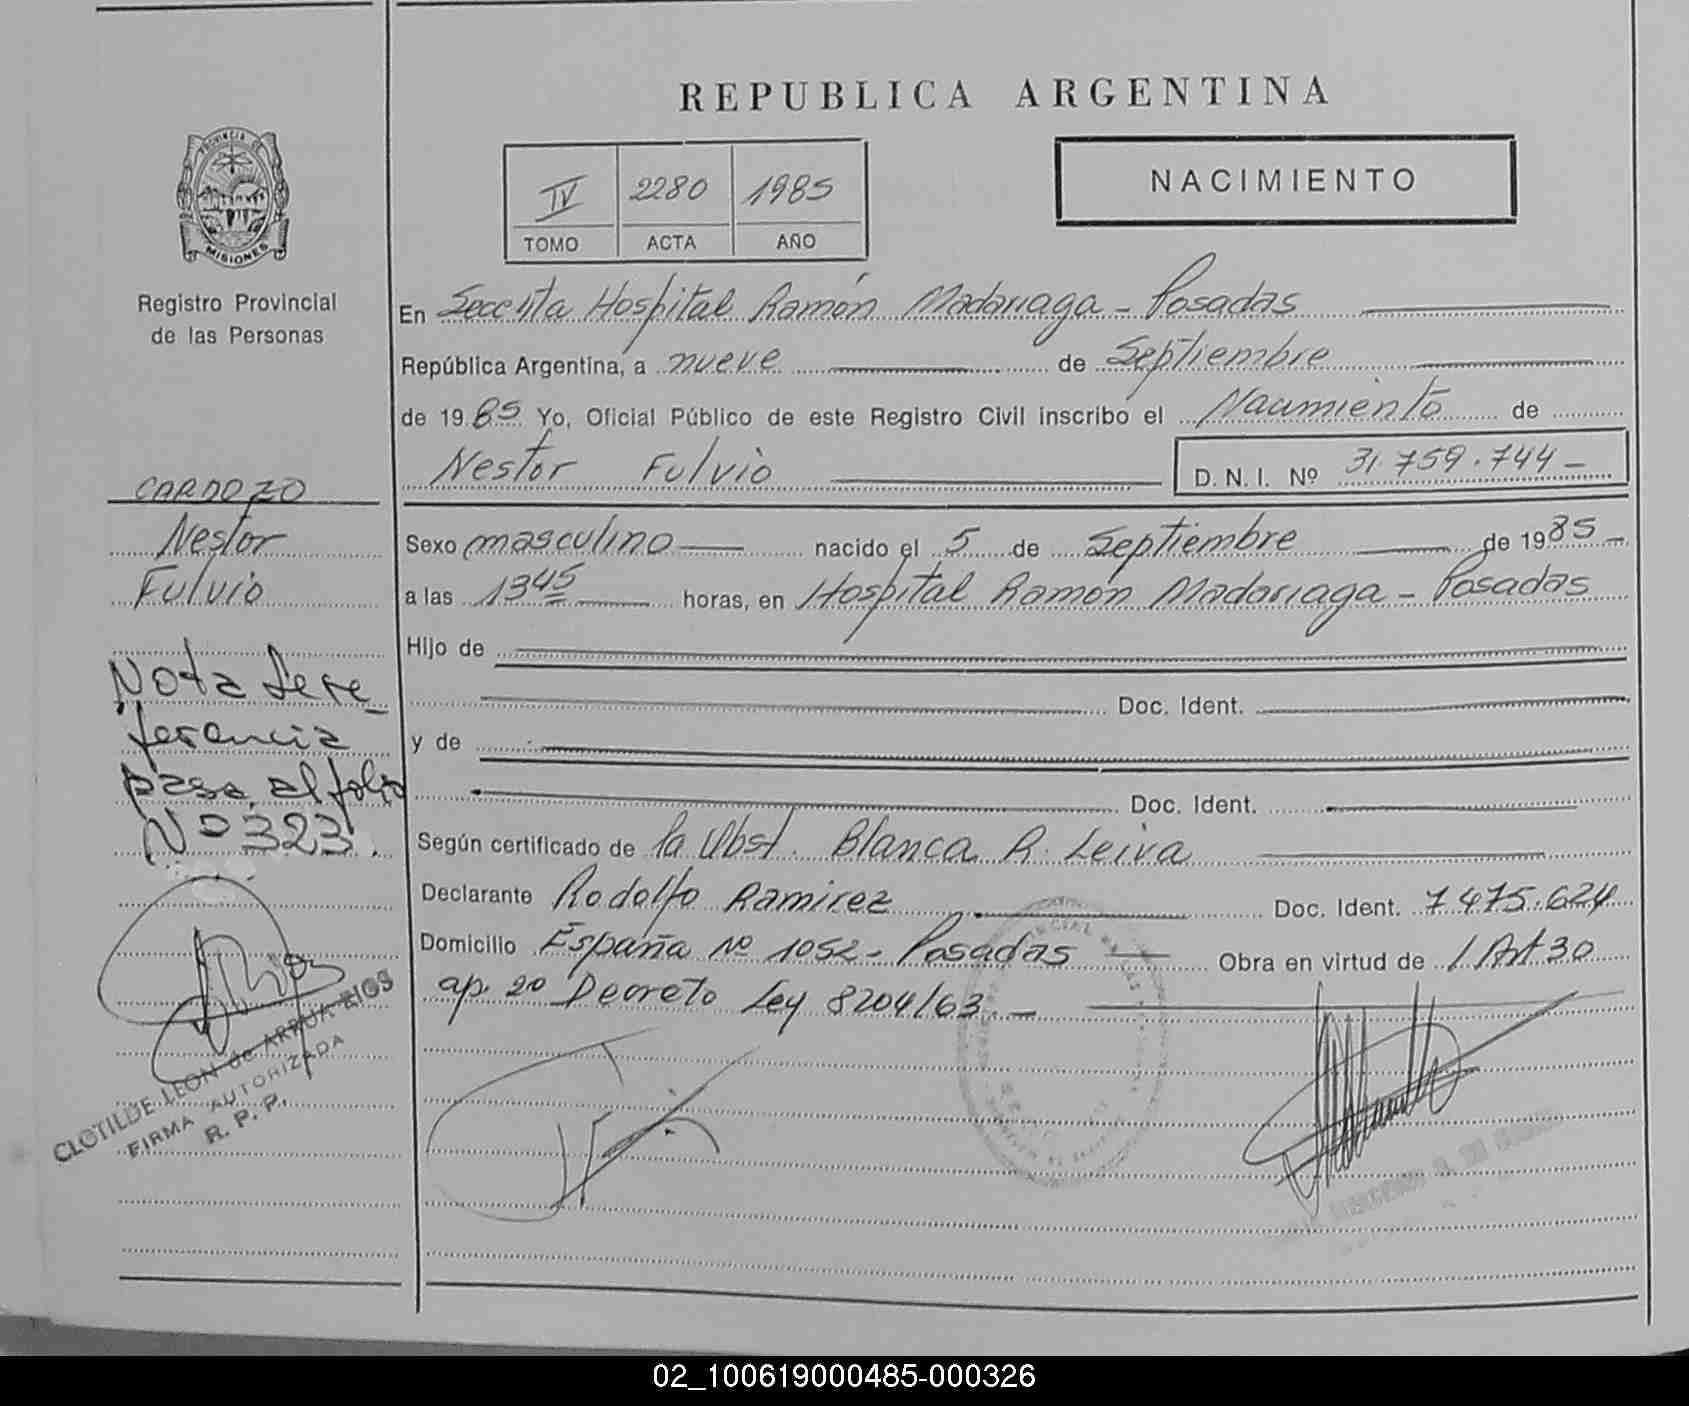 REPUBLICA ARGENTINA
PROVINCIA DE
MISIONES
Registro Provincial
de las Personas
IV 2280 1985
TOMO ACTA AÑO
NACIMIENTO
En Hospital Ramón Madariaga - Posadas
República Argentina, a nueve de Septiembre
de 1985 Yo, Oficial Público de este Registro Civil inscribo el Nacimiento de
Nestor Fulvio
D. N. I. Nº 31.759.744 -
CARDOZO
Nestor
Fulvio
Sexo masculino nacido el 5 de Septiembre de 1985 -
a las 13 45 horas, en Hospital Ramón Madariaga - Posadas
Hijo de
Doc. Ident.
y de
Doc. Ident.
Nota de re
ferencia
pasa al folio
Nº 323.
Según certificado de la Obst. Blanca R. Leiva
Declarante Rodolfo Ramirez Doc. Ident. 7475.624
Domicilio España Nº 1052 - Posadas Obra en virtud de l Art 30
ap. 2º Decreto Ley 8204/63. -
CLOTILDE LEON de ARRUA RIOS
FIRMA AUTORIZADA
R. P. P.
02_100619000485-000326